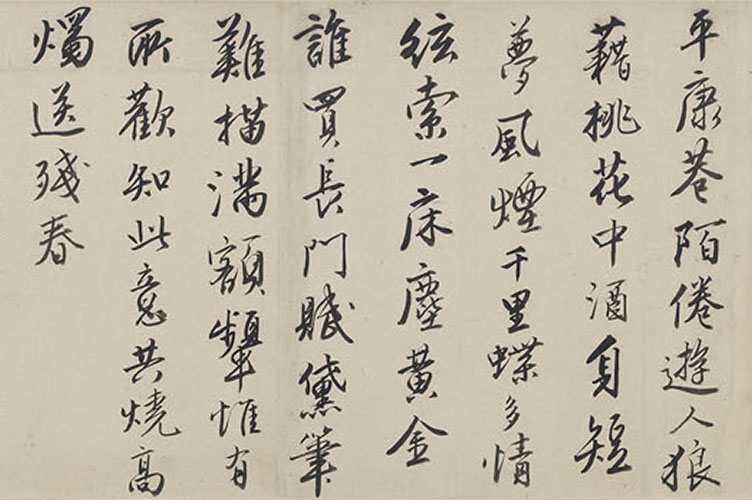 平康巷陌倦遊人狼
藉桃花中酒身短
夢風煙千里蝶多情
絃索一床塵黃金
誰買長門賦黛筆
難描滿額顰惟有
所歡知此意共燒高
燭送殘春